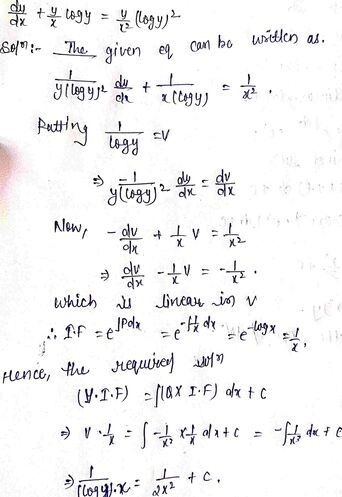 dy/dx + y/x logy = y/x² (logy)²
Solⁿ:- The given eq can be written as.
1/(y(logy)²) dy/dx + 1/(x(logy)) = 1/x².
Putting 1/logy = V
⇒ -1/(y(logy)²) dy/dx = dv/dx
Now, -dv/dx + 1/x V = 1/x²
⇒ dv/dx - 1/x V = -1/x².
which is linear in V
∴ I.F = e^∫Pdx = e^-∫1/x dx = e^-logx = 1/x.
Hence, the required solⁿ
(V.I.F) = ∫(Q X I.F) dx + c
⇒ V.1/x = ∫ -1/x² x 1/x dx + c = -∫1/x³ dx + c
⇒ 1/((logy).x) = 1/2x² + c.